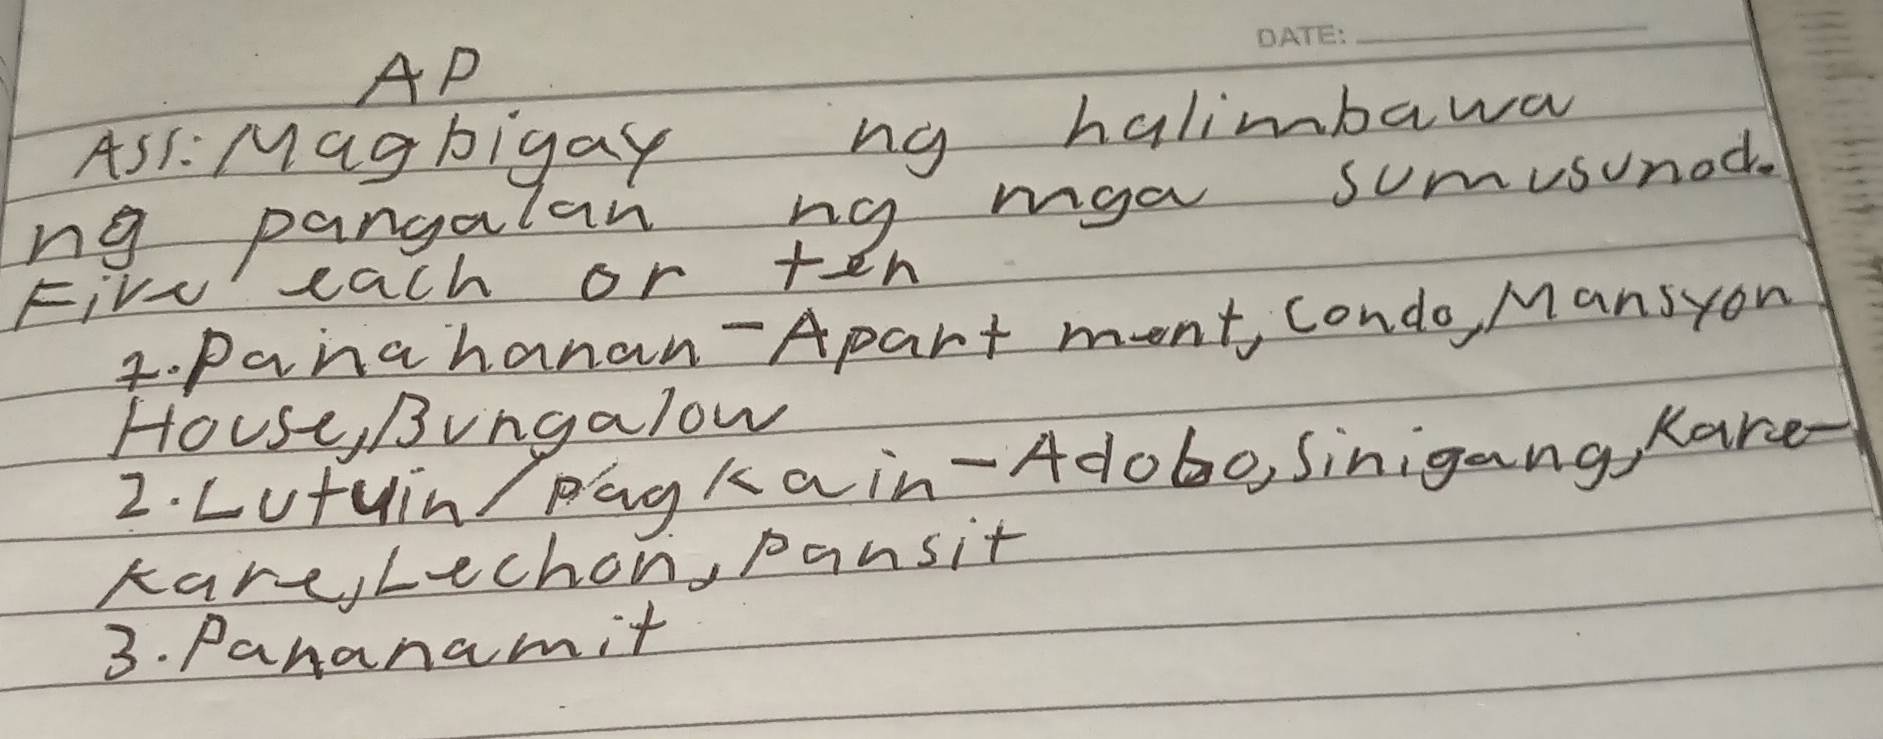 DATE:
AP
Ass: Magbigay ng halimbawa
ng pangalan ng mga sumusunod.
Five each or ten
1. Panahanan - Apartment, Condo, Mansyon
House, Bungalow
2. Lutuin/Pagkain - Adobo, Sinigang, Kare-
Kare, Lechon, Pansit
3. Pananamit